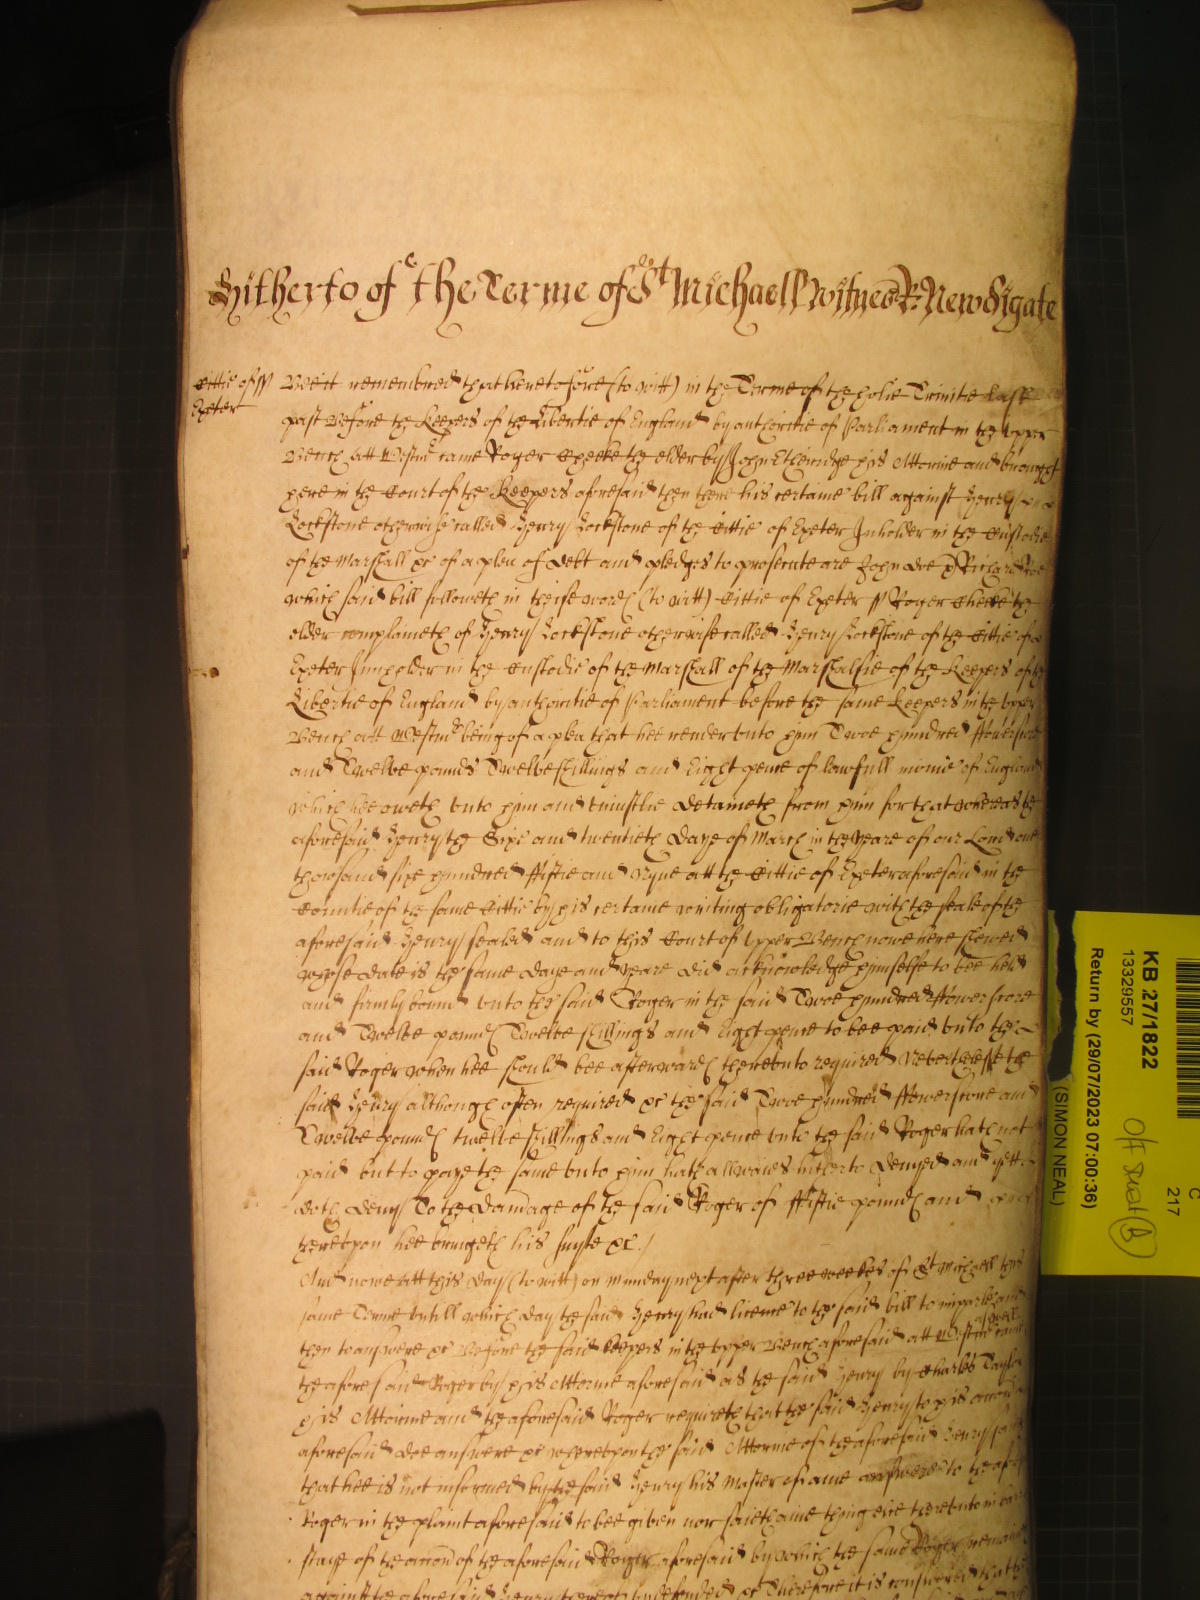 Hitherto of the Terme of St Michaell Witnes R: Newdigate
Cittie of ss
Exeter
Bee it remembred that heretofore (to witt) in the Terme of the holie Trinitie last
past Before the Keepers of the Libertie of England by authoritie of Parliament in the upper
Bench att Westmr came Roger Cheeke the elder by John Etheridge his Attornie and brought
here in the Court of the Keepers aforesaid then there his certaine bill against Henry
Lockstone otherwise called Henry Lockstone of the Cittie of Exeter Inholder in the Custodie
of the Marshall &c of a plea of debt and pledges to prosecute are John Doe & Richard Roe
which said bill followeth in theise wordes (to witt) Cittie of Exeter ss Roger Cheeke the
elder complaineth of Henry Lockstone otherwise called Henry Lockstone of the Cittie of
Exeter Innholder in the Custodie of the Marshall of the Marshalsie of the Keepers of the
Libertie of England by authoritie of Parliament before the same Keepers in the upper
Bench att Westmr being of a plea that hee render unto him Twoe hundred ffowerscore
and Twelve pounds Twelve shillings and Eight pence of lawfull monie of England
which hee oweth unto him and uniustlie detaineth from him for that whereas the
aforesaid Henry the Sixe and twentieth daye of March in the yeare of our Lord one
thowsand sixe hundred ffiftie and Nyne att the Cittie of Exeter aforesaid in the
Countie of the same Cittie by his certaine writing obligatorie with the seale of the
aforesaid Henry sealed and to this Court of Upper Bench nowe here shewed
whose date is the same daye and yeare did acknowledge himselfe to bee held
and firmly bound unto the said Roger in the said Twoe hundred ffowerscore
and Twelve poundes Twelve shillings and Eight pence to bee paid unto the
said Roger when hee should bee afterwardes thereunto required Neverthelesse the
said Henry although often required &c the said Twoe hundred ffowerscore and
Twelve poundes twelve shillings and Eight pence unto the said Roger hath not
paid but to paye the same unto him hath allwaies hitherto denyed and yett
doth deny To the damage of the said Roger of ffiftie poundes and
thereupon hee bringeth his suyte &c./
And nowe att this day (to witt) on Munday next after three weekes of St Michaell this
same Terme untill which day the said Henry had licence to the said bill to imparle and
then to answere &c Before the said keepers in the upper Bench aforesaid att Westmr came aswell
the aforesaid Roger by his Attornie aforesaid as the said Henry by Charles Taylor
his Attornie and the aforesaid Roger requireth that the said Henry to his
aforesaid doe answere &c whereupon the said Attornie of the aforesaid Henry
that hee is not informed by the said Henry his Master of anie answere to the
Roger in the plaint aforesaid to bee given nor saieth anie thing else thereunto in
staye of the accon of the aforesaid Roger aforesaid by which the same Roger
against the aforesaid Henry thereof undefended &c Therefore it is considered that the
KB 27/1822
13329557
Return by (29/07/2023 07:00:36)
(SIMON NEAL)
C
217